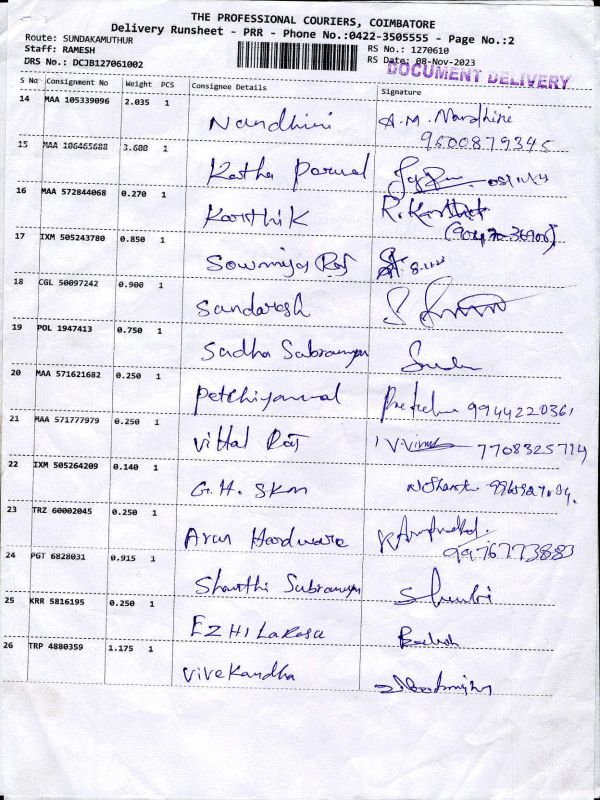 THE PROFESSIONAL COURIERS, COIMBATORE
Delivery Runsheet - PRR - Phone No.:0422-3505555 - Page No.:2
Route: SUNDAKAMUTHUR
Staff: RAMESH RS No.: 1270610
DRS No.: DCJB127061002 RS Date: 08-Nov-2023
DOCUMENT DELIVERY
S No Consignment No Weight PCS Consignee Details Signature
14 MAA 105339096 2.035 1 Nandhini A.M. Nandhine
9600879345
15 MAA 106465688 3.600 1 Katha Porwal
16 MAA 572844068 0.270 1 Karthik R. Karthik
17 IXM 505243780 0.850 1 Sowmiya Raj
18 CGL 50097242 0.900 1 Sandarsh
19 POL 1947413 0.750 1 Sadha Subramayan
20 MAA 571621682 0.250 1 Petchiyammal 9944220361
21 MAA 571777979 0.250 1 Vittal Raj 7708325714
22 IXM 505264209 0.140 1 G.H. Skm
23 TRZ 60002045 0.250 1 Arun Hardware
9976773883
24 PGT 6828031 0.915 1 Shanthi Subramayan
25 KRR 5816195 0.250 1 EZHI Larasu
26 TRP 4880359 1.175 1 Vivekandha